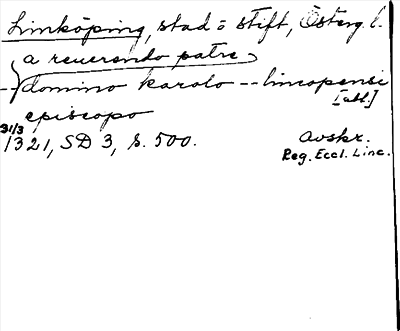 Linköping, stad o stift, Österg. l.
a reverendo patre
-- domino karolo -- lincopensi
[abl.]
episcopo
31/3
1321, SD 3, s. 500.
Avskr.
Reg. Eccl. Linc.